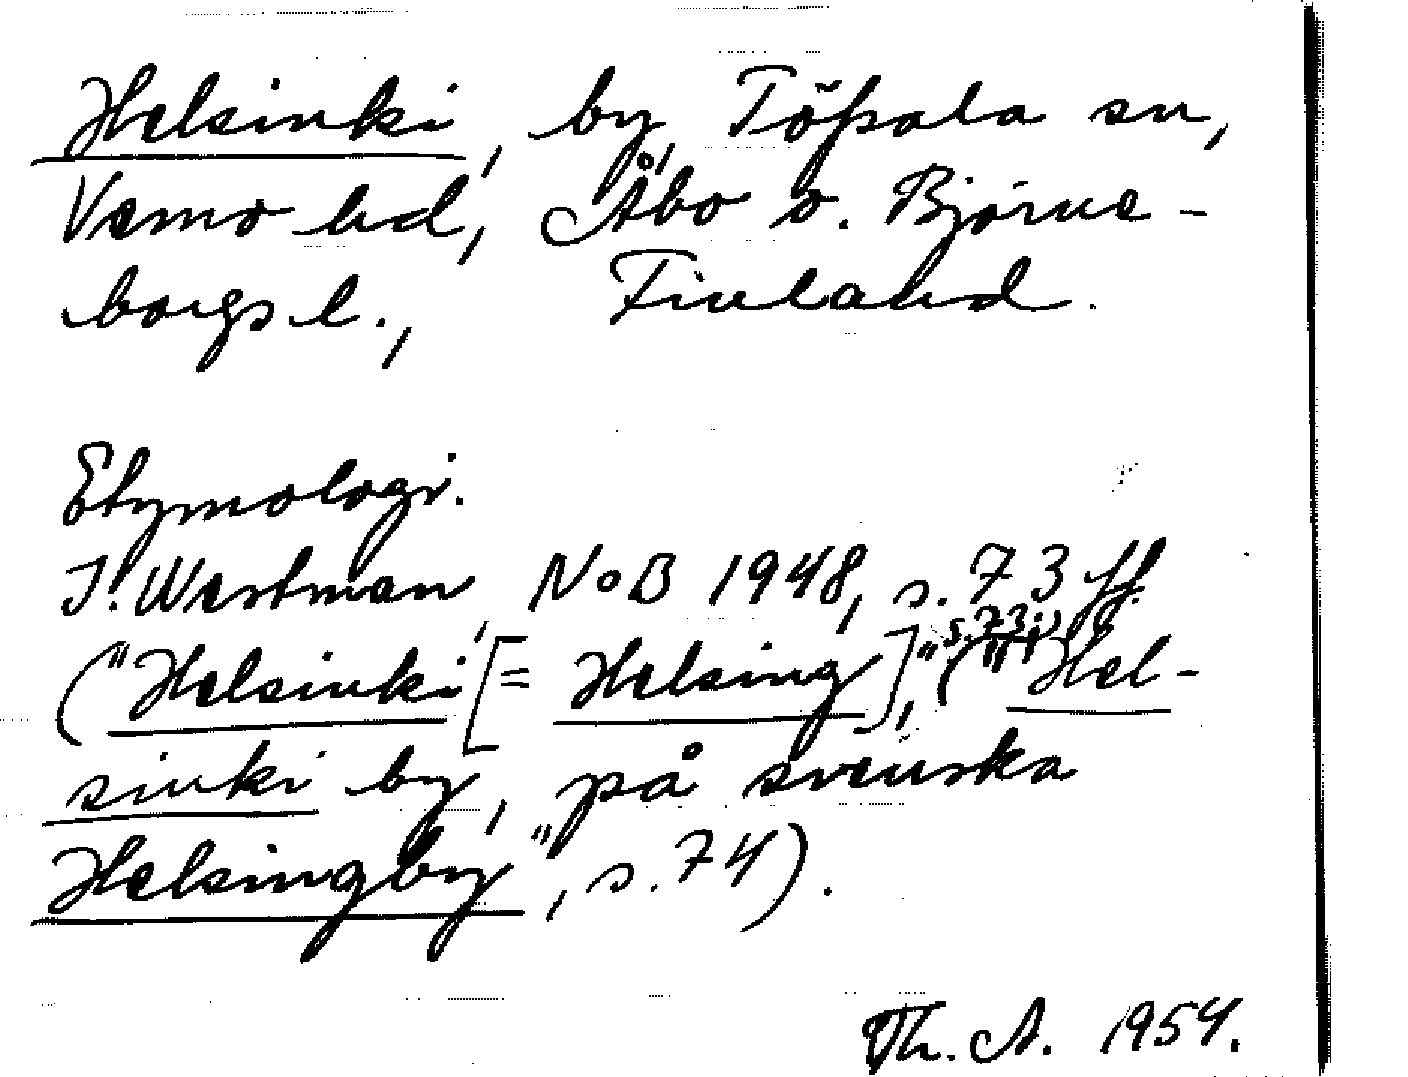 Helsinki, by, Töfsala sn,
Vemo hd, Åbo o. Björne-
borgs l., Finland.
Etymologi.
I. Westman NoB 1948, s. 73 ff.
("Helsinki [= Helsing]," s. 73; "Hel-
sinki by, på svenska
Helsingby", s. 74).
Th. A. 1954.